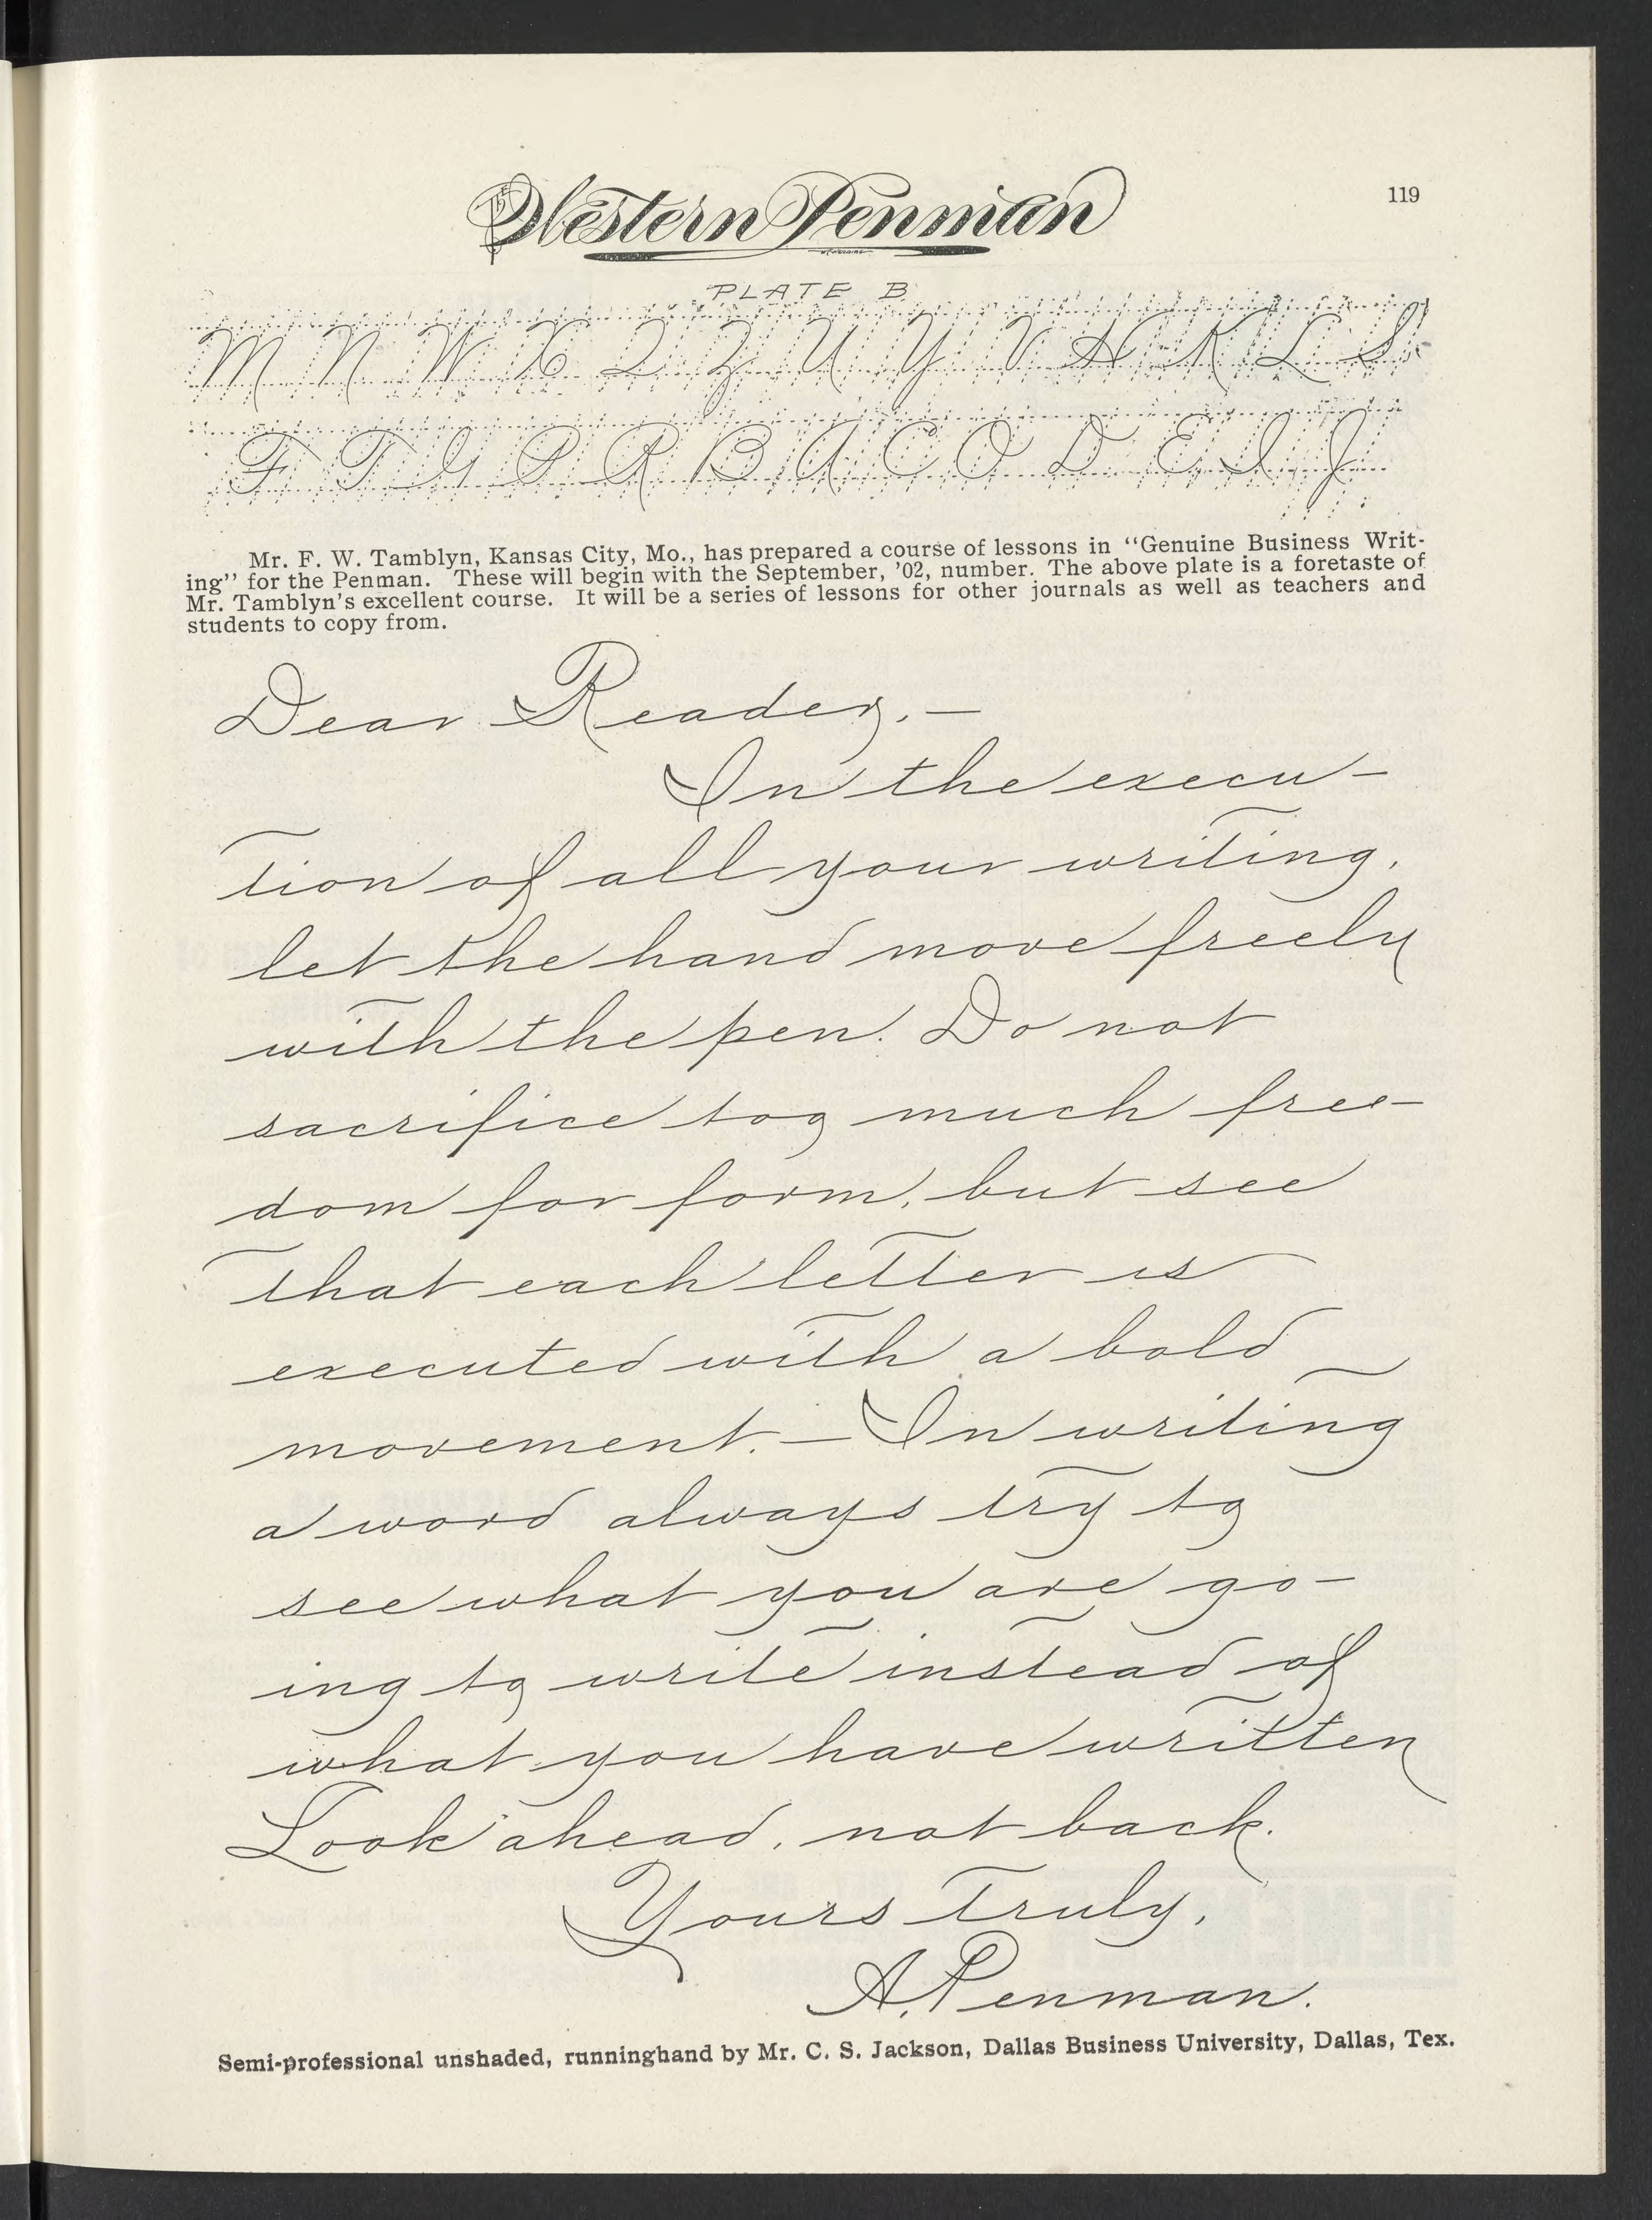 The Western Penman
119
PLATE B
M N W X Q Z U Y V H K L S
F T G P R B A C O D E I J
Mr. F. W. Tamblyn, Kansas City, Mo., has prepared a course of lessons in “Genuine Business Writ-
ing” for the Penman. These will begin with the September, ’02, number. The above plate is a foretaste of
Mr. Tamblyn’s excellent course. It will be a series of lessons for other journals as well as teachers and
students to copy from.
Dear Reader,—
In the execu-
tion of all your writing,
let the hand move freely
with the pen. Do not
sacrifice too much free-
dom for form, but see
that each letter is
executed with a bold
movement.— In writing
a word always try to
see what you are go-
ing to write instead of
what you have written
Look ahead, not back.
Yours Truly,
A. Penman.
Semi-professional unshaded, runninghand by Mr. C. S. Jackson, Dallas Business University, Dallas, Tex.